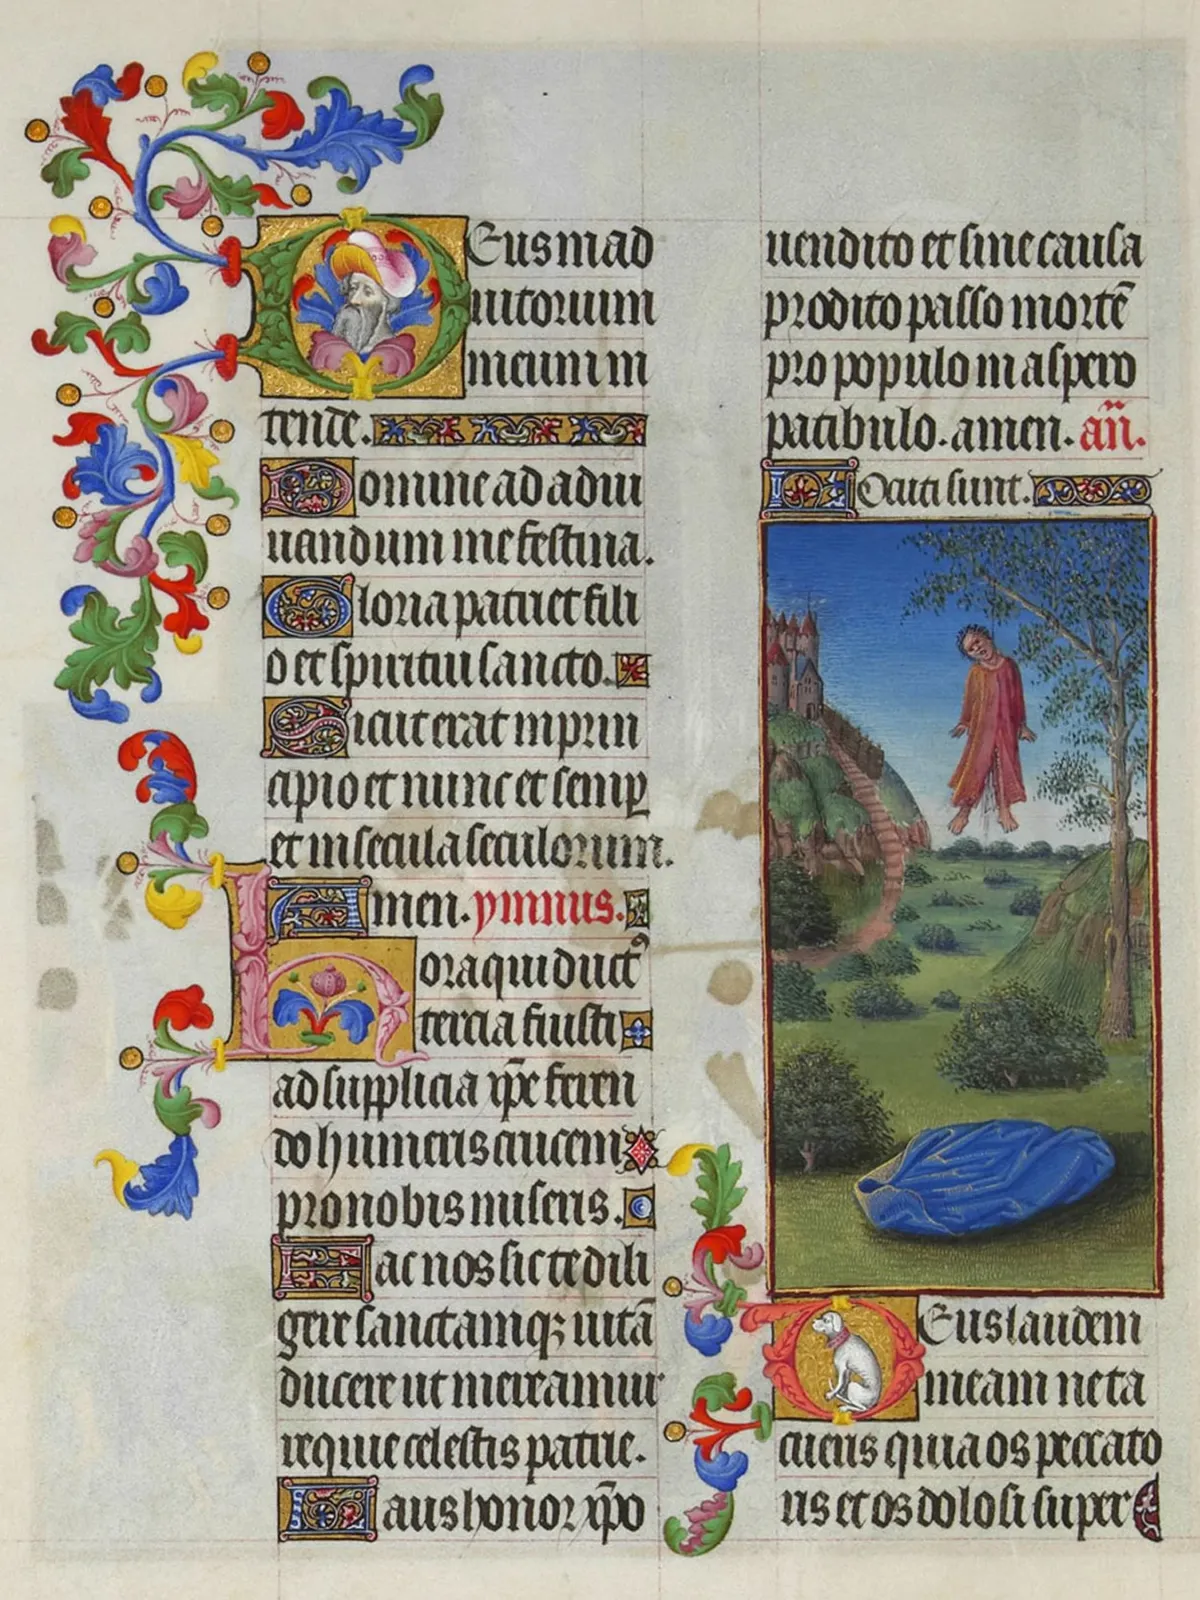 Deus in ad
iutorium
meum in
tende.
Domine ad adiu
uandum me festina.
Gloria patri et fili
o et spiritui sancto.
Sicut erat in prin
cipio et nunc et semp
et in secula seculorum.
Amen. ymnus.
Hora qui duct⁹
tercia fuisti
ad supplicia xp̄e feren
do humeris crucem
pro nobis miseris.
Fac nos sic te dili
gere sanctamqꝫ uitā
ducere ut mereamur
requie celestis patrie.
Laus honor xp̄o
uendito et sine causa
prodito passo mortē
pro populo in aspero
patibulo. amen. añ.
Locuti sunt.
Deus laudem
meam ne ta
cueris quia os peccato
ris et os dolosi super